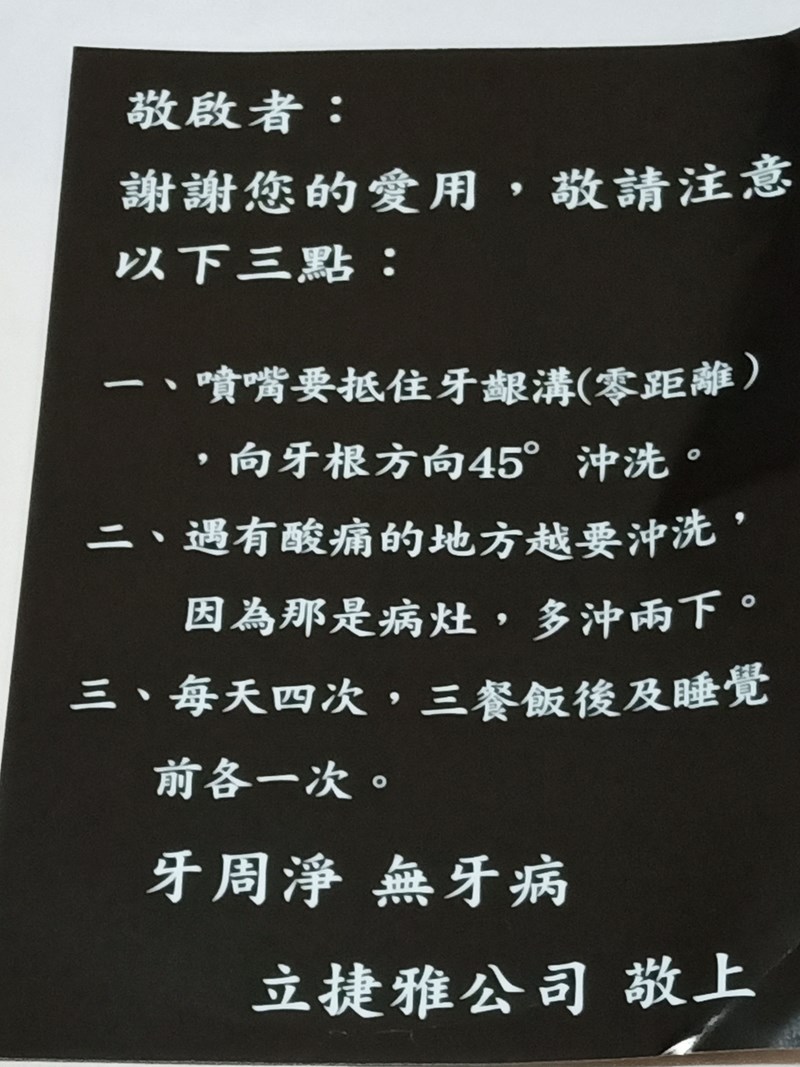 敬啟者：
謝謝您的愛用，敬請注意
以下三點：
一、噴嘴要抵住牙齦溝(零距離)
，向牙根方向45° 沖洗。
二、遇有酸痛的地方越要沖洗，
因為那是病灶，多沖兩下。
三、每天四次，三餐飯後及睡覺
前各一次。
牙周淨 無牙病
立捷雅公司 敬上